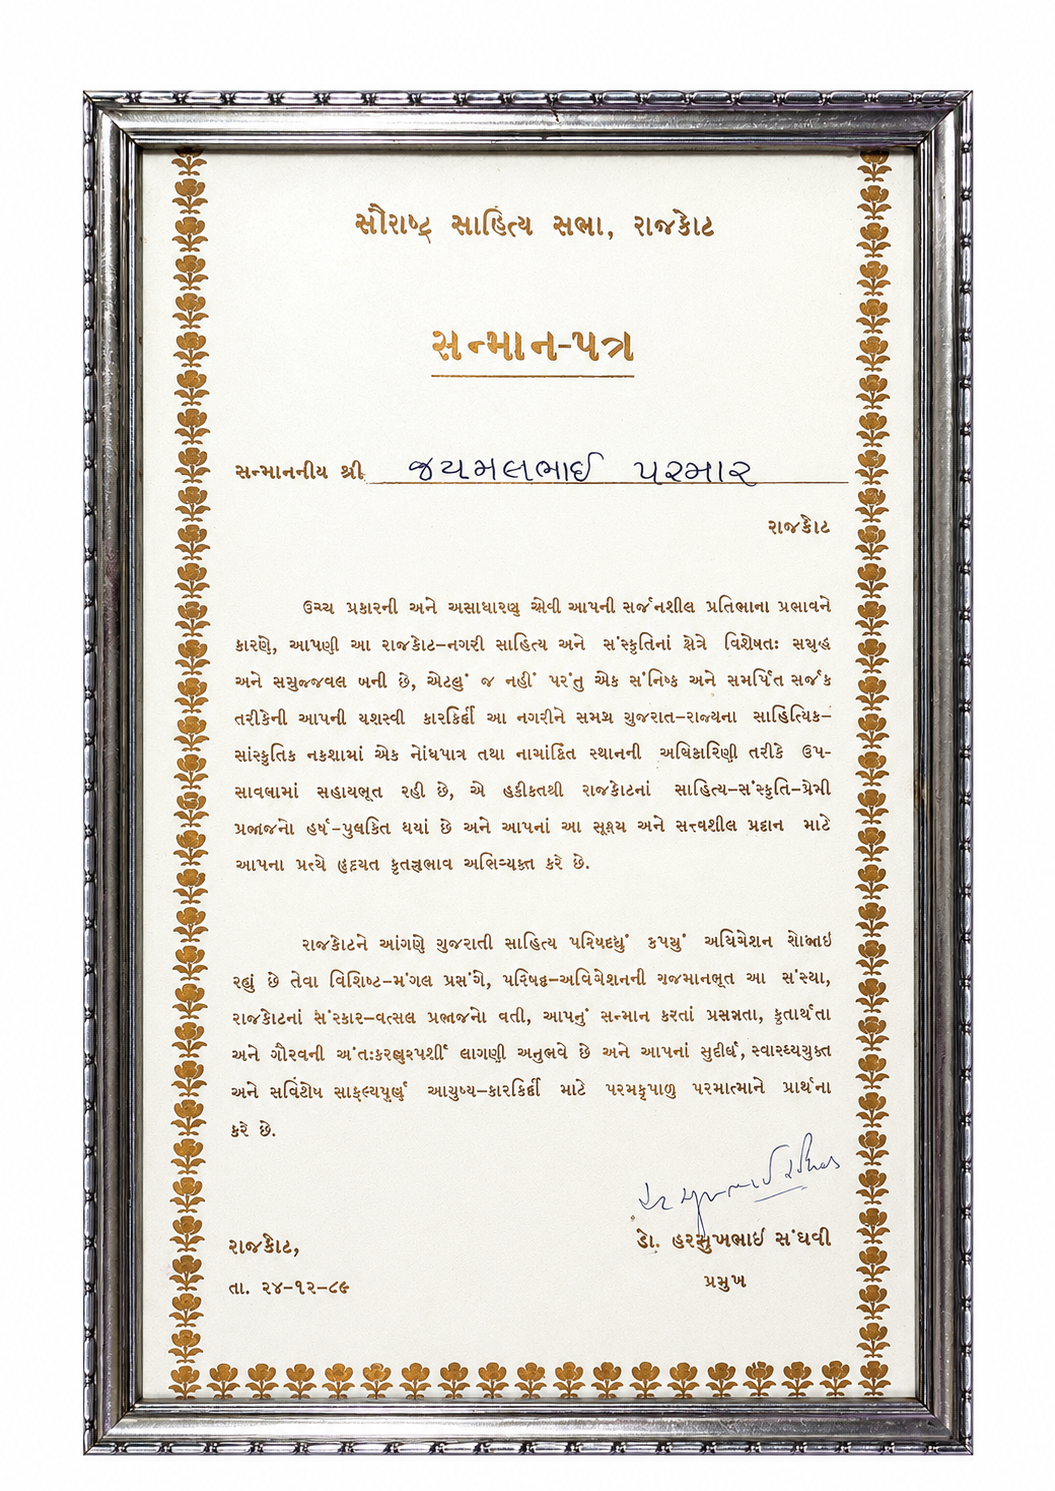 સૌરાષ્ટ્ર સાહિત્ય સભા, રાજકોટ
સન્માન-પત્ર
સન્માનનીય શ્રી જયમલભાઈ પરમાર
રાજકોટ
ઉચ્ચ પ્રકારની અને અસાધારણ એવી આપની સર્જનશીલ પ્રતિભાના પ્રભાવને
કારણે, આપણી આ રાજકોટ-નગરી સાહિત્ય અને સંસ્કૃતિનાં ક્ષેત્રે વિશેષતઃ
અને સમુજ્જવલ બની છે, એટલું જ નહીં પરંતુ એક સંનિષ્ઠ અને સમર્પિત સર્જક
તરીકેની આપની યશસ્વી કારકિર્દી આ નગરીને સમગ્ર ગુજરાત-રાજ્યના સાહિત્યિક-
સાંસ્કૃતિક નકશામાં એક નોંધપાત્ર તથા નામાંકિત સ્થાનની અધિકારિણી તરીકે ઉપ-
સાવવામાં સહાયભૂત રહી છે, એ હકીકતથી રાજકોટનાં સાહિત્ય-સંસ્કૃતિ-પ્રેમી
પ્રજાજનો હર્ષ-પુલકિત થયાં છે અને આપનાં આ અને સત્ત્વશીલ પ્રદાન માટે
આપના પ્રત્યે હૃદયત કૃતજ્ઞભાવ અભિવ્યક્ત કરે છે.
રાજકોટને આંગણે ગુજરાતી સાહિત્ય પરિષદનું અધિવેશન
રહ્યું છે તેવા વિશિષ્ટ-મંગલ પ્રસંગે, પરિષદ-અધિવેશનની યજમાનભૂત આ સંસ્થા,
રાજકોટનાં સંસ્કાર-વત્સલ પ્રજાજનો વતી, આપનું સન્માન કરતાં પ્રસન્નતા, કૃતાર્થતા
અને ગૌરવની અંતઃકરણસ્પર્શી લાગણી અનુભવે છે અને આપનાં સુદીર્ઘ, સ્વાસ્થ્યયુક્ત
અને સવિશેષ સાફલ્યપૂર્ણ આયુષ્ય-કારકિર્દી માટે પરમકૃપાળુ પરમાત્માને પ્રાર્થના
કરે છે.
ડો. હરસુખભાઈ સંઘવી
પ્રમુખ
રાજકોટ,
તા. ૨૪-૧૨-૮૯